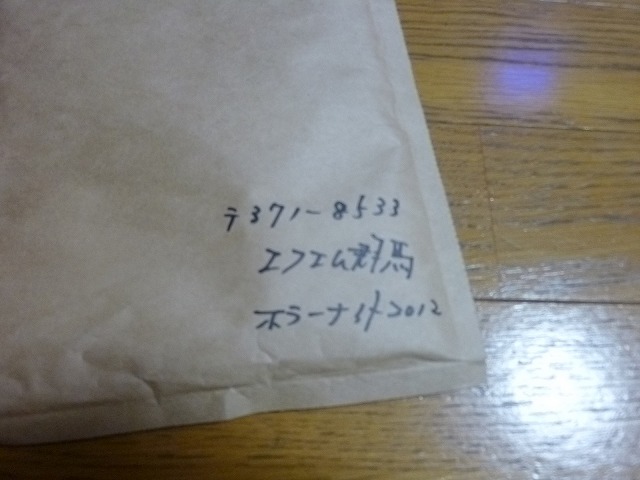 〒371-8533
エフエム群馬
ホラーナイト2012